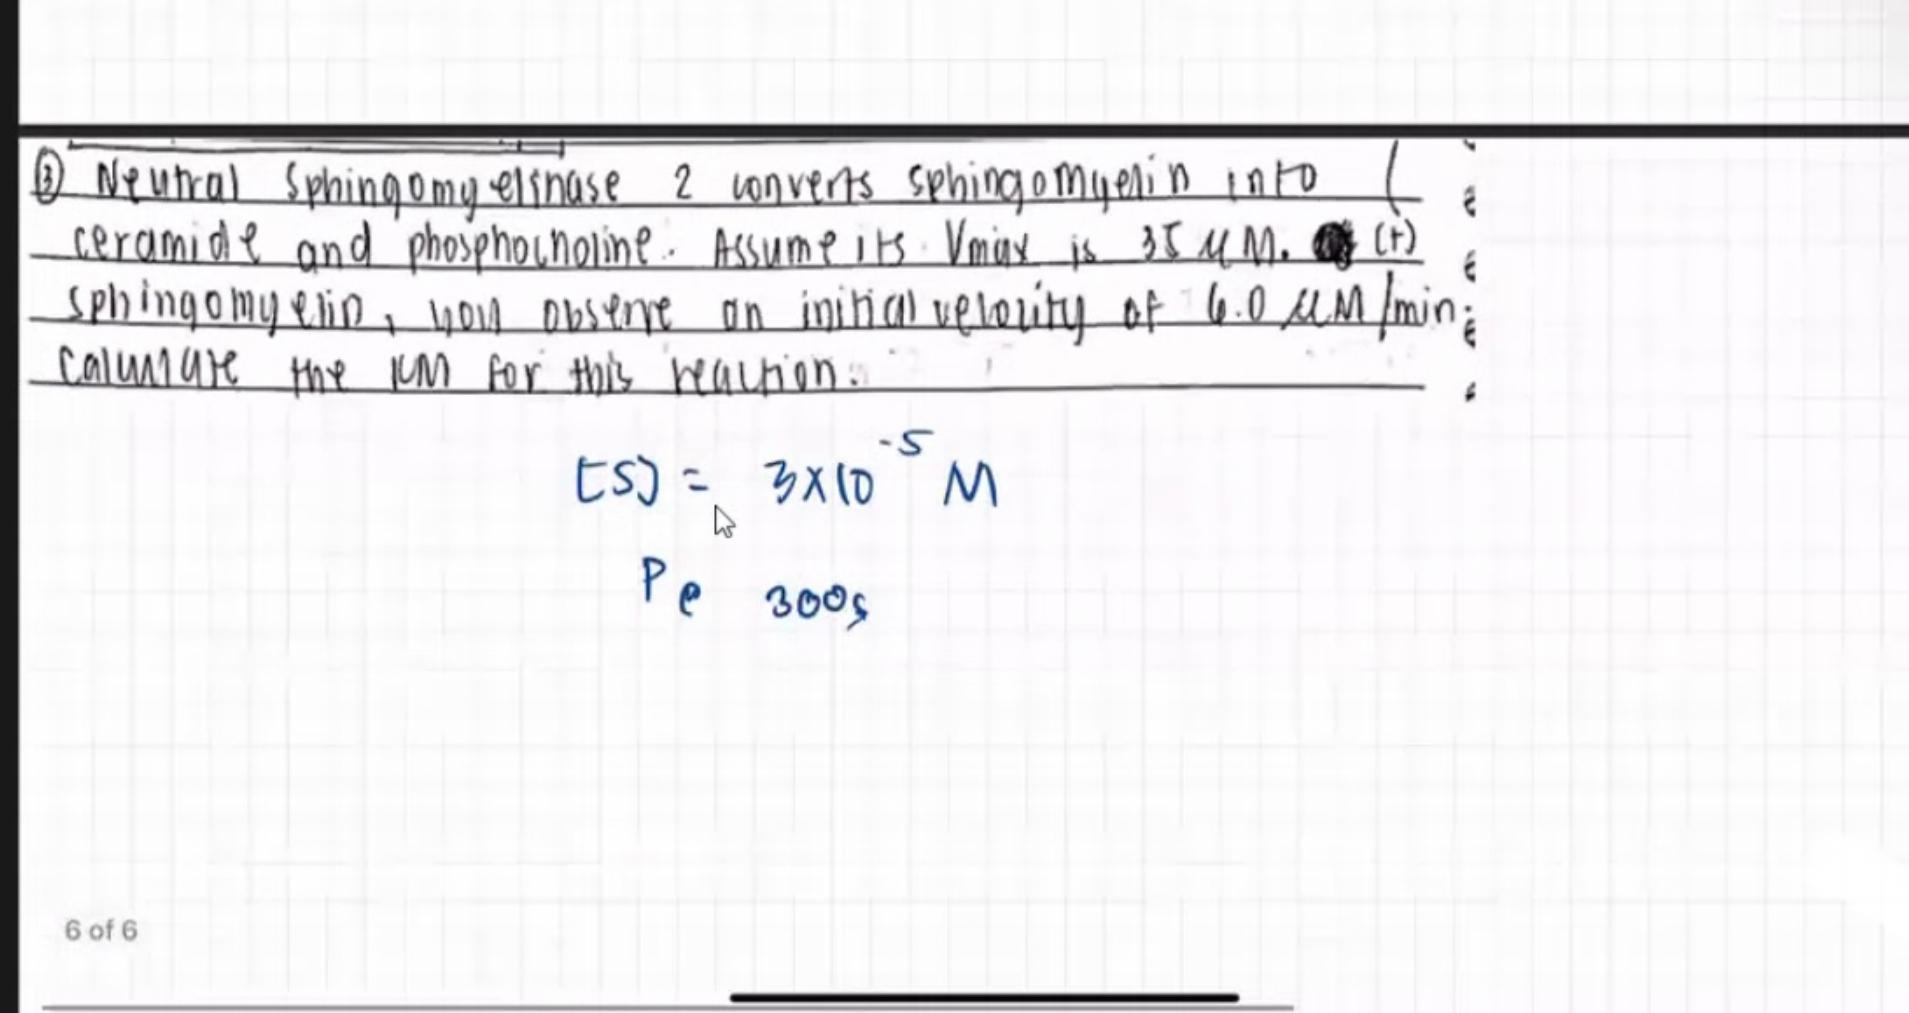 ③ Neutral Sphingomyelinase 2 converts sphingomyelin into (
ceramide and phosphocholine. Assume its Vmax is 35 μM. (t)
sphingomyelin, you observe an initial velocity of 6.0 μM/min.
Calculate the KM for this reaction.
[S] = 3×10⁻⁵ M
P e 300s
6 of 6